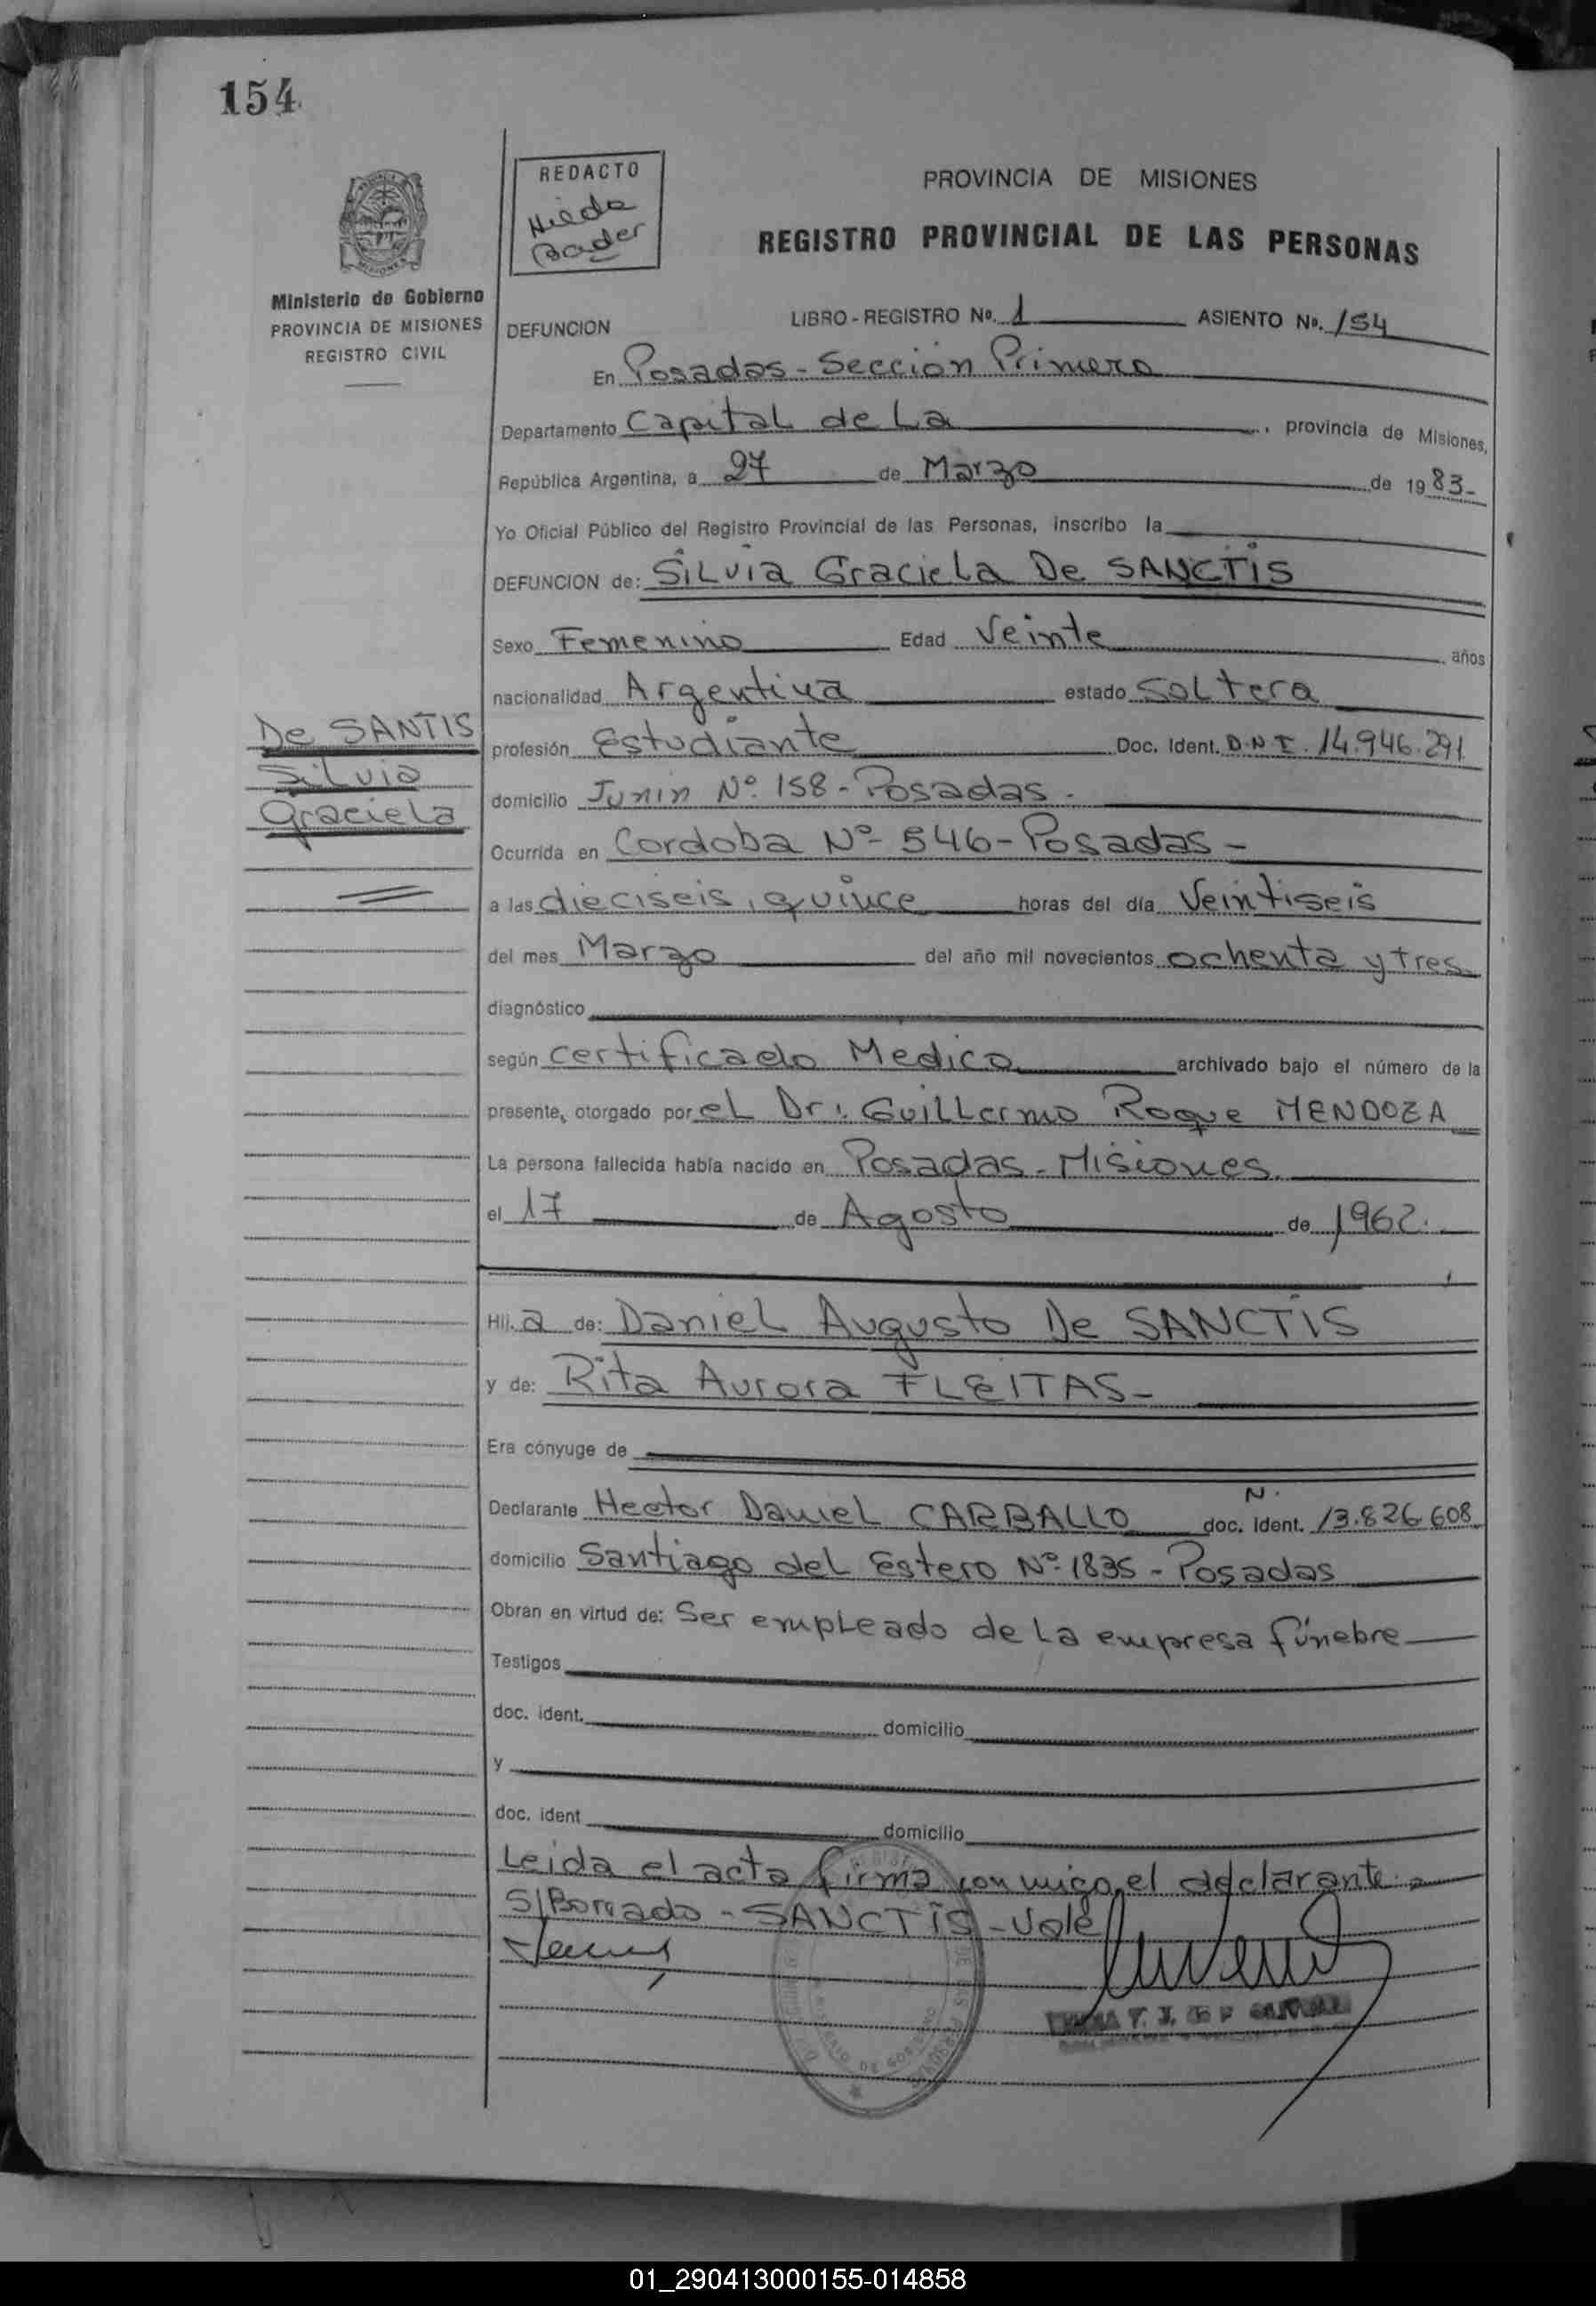 154
REDACTO
Bader
PROVINCIA DE MISIONES
REGISTRO PROVINCIAL DE LAS PERSONAS
Ministerio de Gobierno
PROVINCIA DE MISIONES
REGISTRO CIVIL
DEFUNCION LIBRO-REGISTRO Nº. 1 ASIENTO Nº. 154
En Posadas - Sección Primera
Departamento Capital de La, provincia de Misiones,
República Argentina, a 27 de Marzo de 1983-
Yo Oficial Público del Registro Provincial de las Personas, inscribo la
DEFUNCION de: Silvia Graciela De SANCTIS
Sexo Femenino Edad Veinte años
nacionalidad Argentina estado Soltera
De SANTIS
Silvia
Graciela
profesión Estudiante Doc. Ident. D.N.I. 14.946.291
domicilio Junin Nº 158 - Posadas.
Ocurrida en Cordoba Nº 546 - Posadas -
a las dieciseis, quince horas del día Veintiseis
del mes Marzo del año mil novecientos ochenta y tres
diagnóstico
según certificado Medico archivado bajo el número de la
presente, otorgado por el Dr: Guillermo Roque MENDOZA
La persona fallecida había nacido en Posadas - Misiones.
el 17 de Agosto de 1962.
Hij.a de: Daniel Augusto De SANCTIS
y de: Rita Aurora FLEITAS-
Era cónyuge de
Declarante Hector Daniel CARBALLO doc. ident. N. 13.826.608
domicilio Santiago del Estero Nº 1835 - Posadas
Obran en virtud de: Ser empleado de la empresa fúnebre
Testigos
doc. ident. domicilio
y
doc. ident domicilio
Leida el acta firma conmigo, el declarante.
S/Borrado - SANCTIS - Vale
01_290413000155-014858